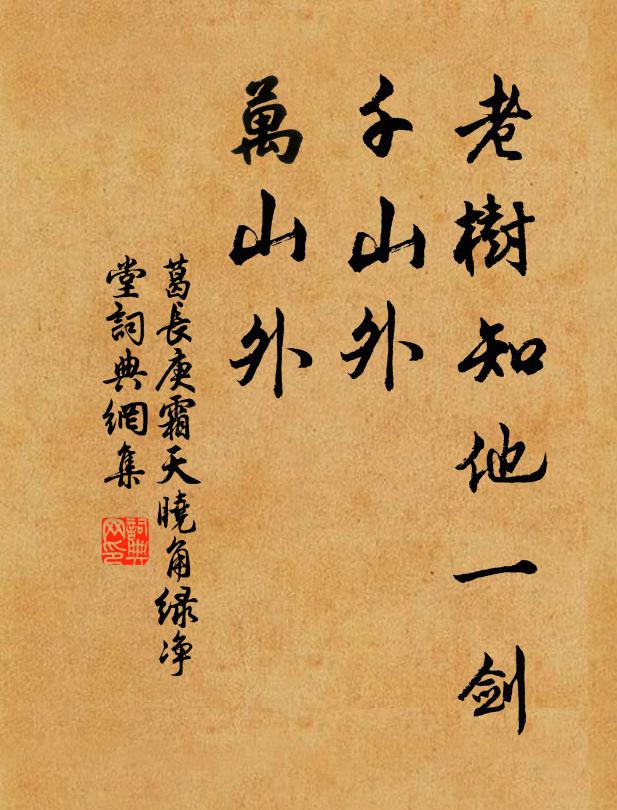 老樹知他一剑
千山外
萬山外
葛長庚霜天曉角緑净
堂詞典網集
詞典
网印